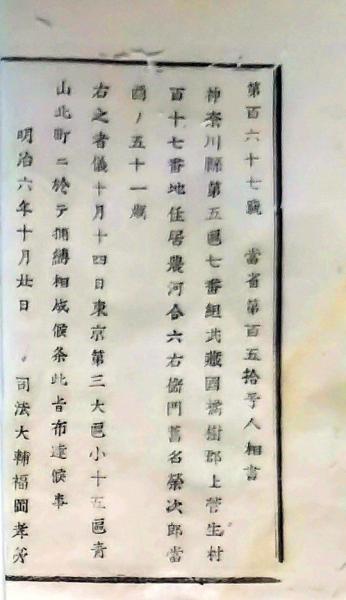 第百六十七號　當省第百五拾号人相書
神奈川縣第五區七番組武藏國橘樹郡上菅生村
百十七番地住居農河合六右衞門舊名榮次郎當
酉ノ五十一歳
右之者儀十月十四日東京第三大區小十五區靑
山北町ニ於テ捕縛相成候条此旨布達候事
明治六年十月廿日　司法大輔福岡孝弟